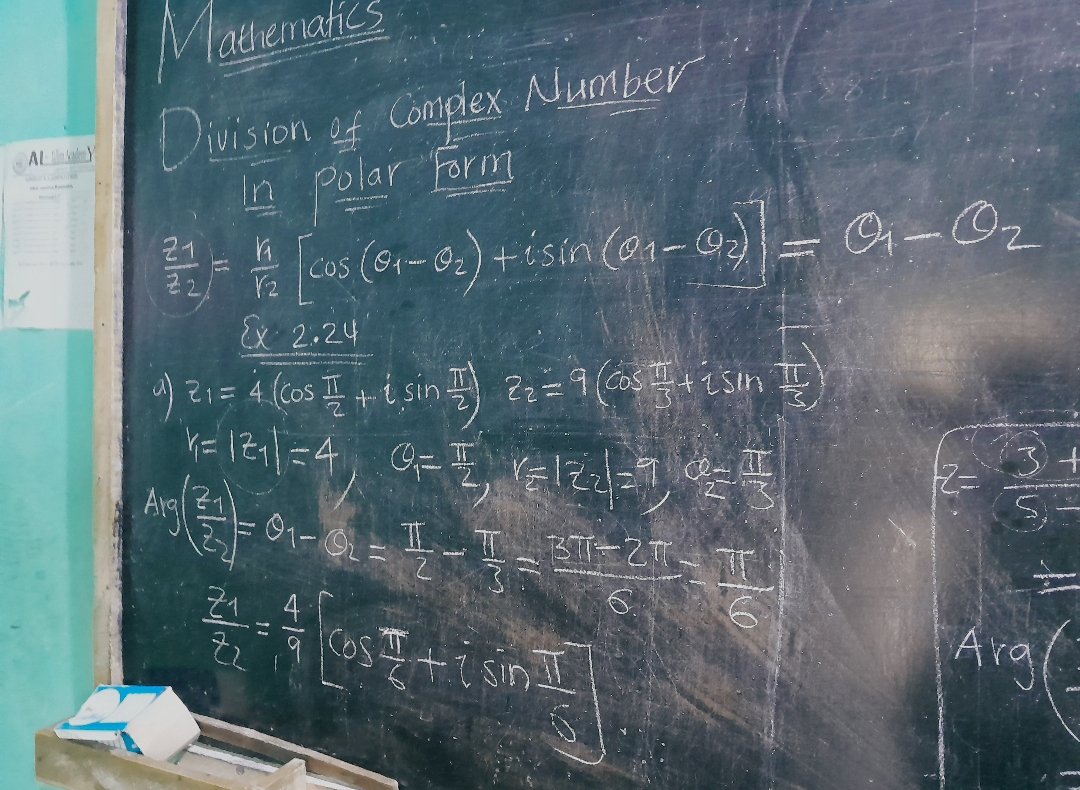 Mathematics
Division of Complex Number
In Polar Form
z1/z2 = r1/r2 [cos (θ1 - θ2) + i sin (θ1 - θ2)] = θ1 - θ2
Ex 2.24
a) z1 = 4 (cos π/2 + i sin π/2) z2 = 9 (cos π/3 + i sin π/3)
r = |z1| = 4, θ1 = π/2, r = |z2| = 9, θ2 = π/3
Arg (z1/z2) = θ1 - θ2 = π/2 - π/3 = (3π - 2π)/6 = π/6
z1/z2 = 4/9 [cos π/6 + i sin π/6]
AL
z = 3 + / 5 -
=
Arg (